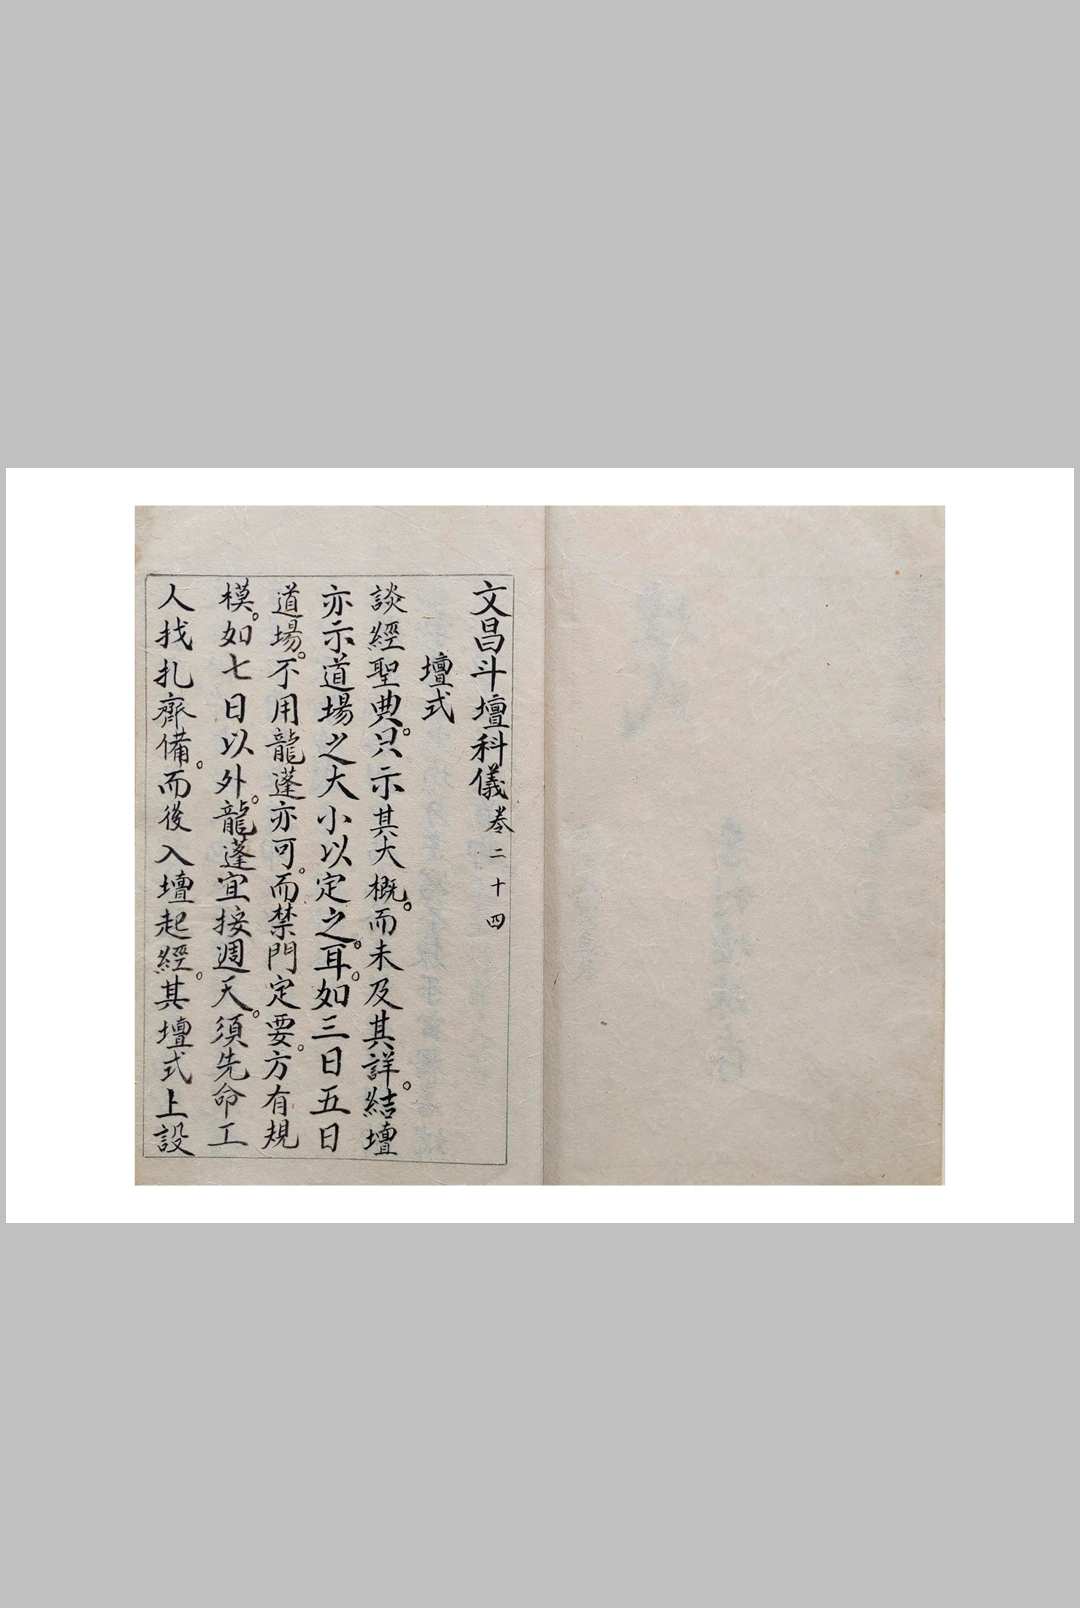 文昌斗壇科儀卷二十四
壇式
談經聖典。只示其大概。而未及其詳。結壇
亦示道場之大小以定之。耳。如三日五日
道場。不用龍蓬亦可。而禁門定要。方有規
模。如七日以外。龍蓬宜接週天。須先命工
人找扎齊備。而後入壇起經。其壇式上設